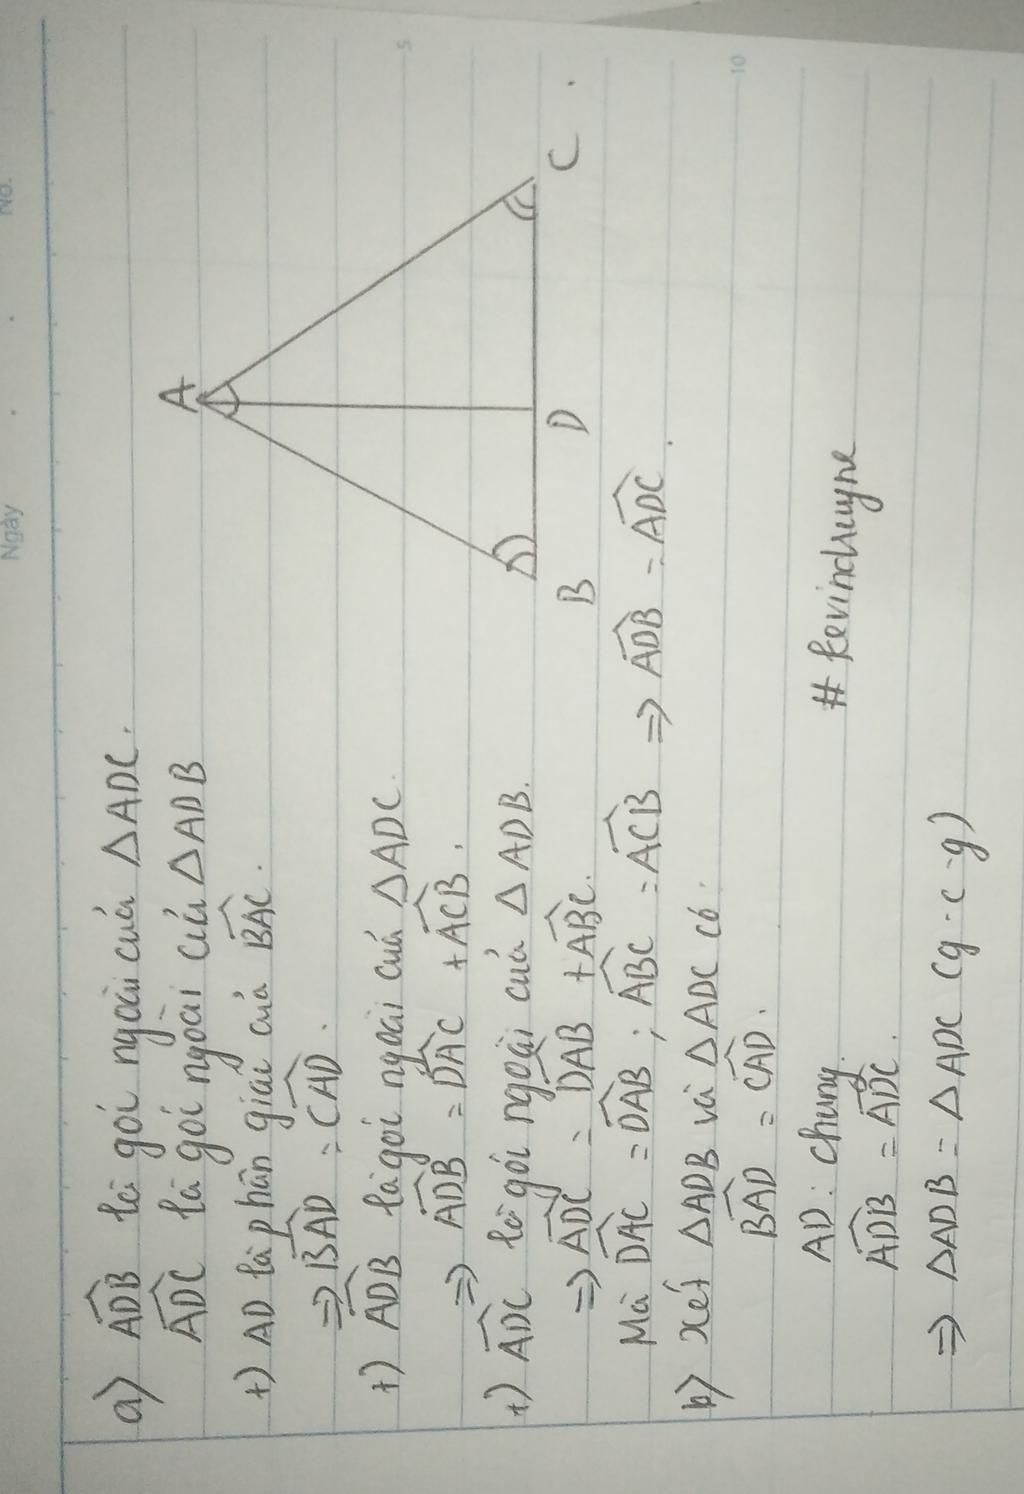 Ngày No.
a) ADB là gói ngoài của ΔADC.
ADC là gói ngoài của ΔADB
+) AD là phân giác của BAC.
⇒ BAD = CAD.
+) ADB là gói ngoài của ΔADC.
⇒ ADB = DAC + ACB.
+) ADC là gói ngoài của ΔADB.
⇒ ADC = DAB + ABC.
Mà DAC = DAB ; ABC = ACB ⇒ ADB = ADC.
A
B D C
b) Xét ΔADB và ΔADC có:
BAD = CAD.
AD: chung.
ADB = ADC.
# kevinchuyne
⇒ ΔADB = ΔADC (g-c-g)
5
10